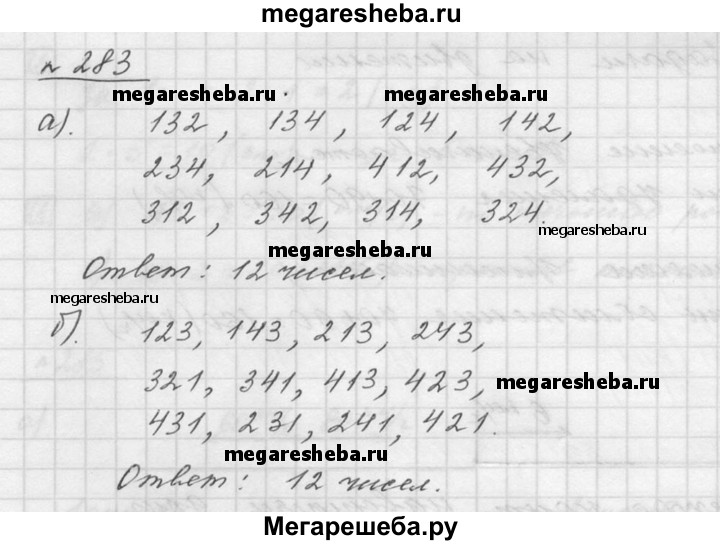 megaresheba.ru
№ 283
megaresheba.ru megaresheba.ru
а). 132, 134, 124, 142,
234, 214, 412, 432,
312, 342, 314, 324.
megaresheba.ru
megaresheba.ru
Ответ: 12 чисел.
megaresheba.ru
б). 123, 143, 213, 243,
321, 341, 413, 423,
megaresheba.ru
431, 231, 241, 421.
megaresheba.ru
Ответ: 12 чисел.
Мегарешеба.ру